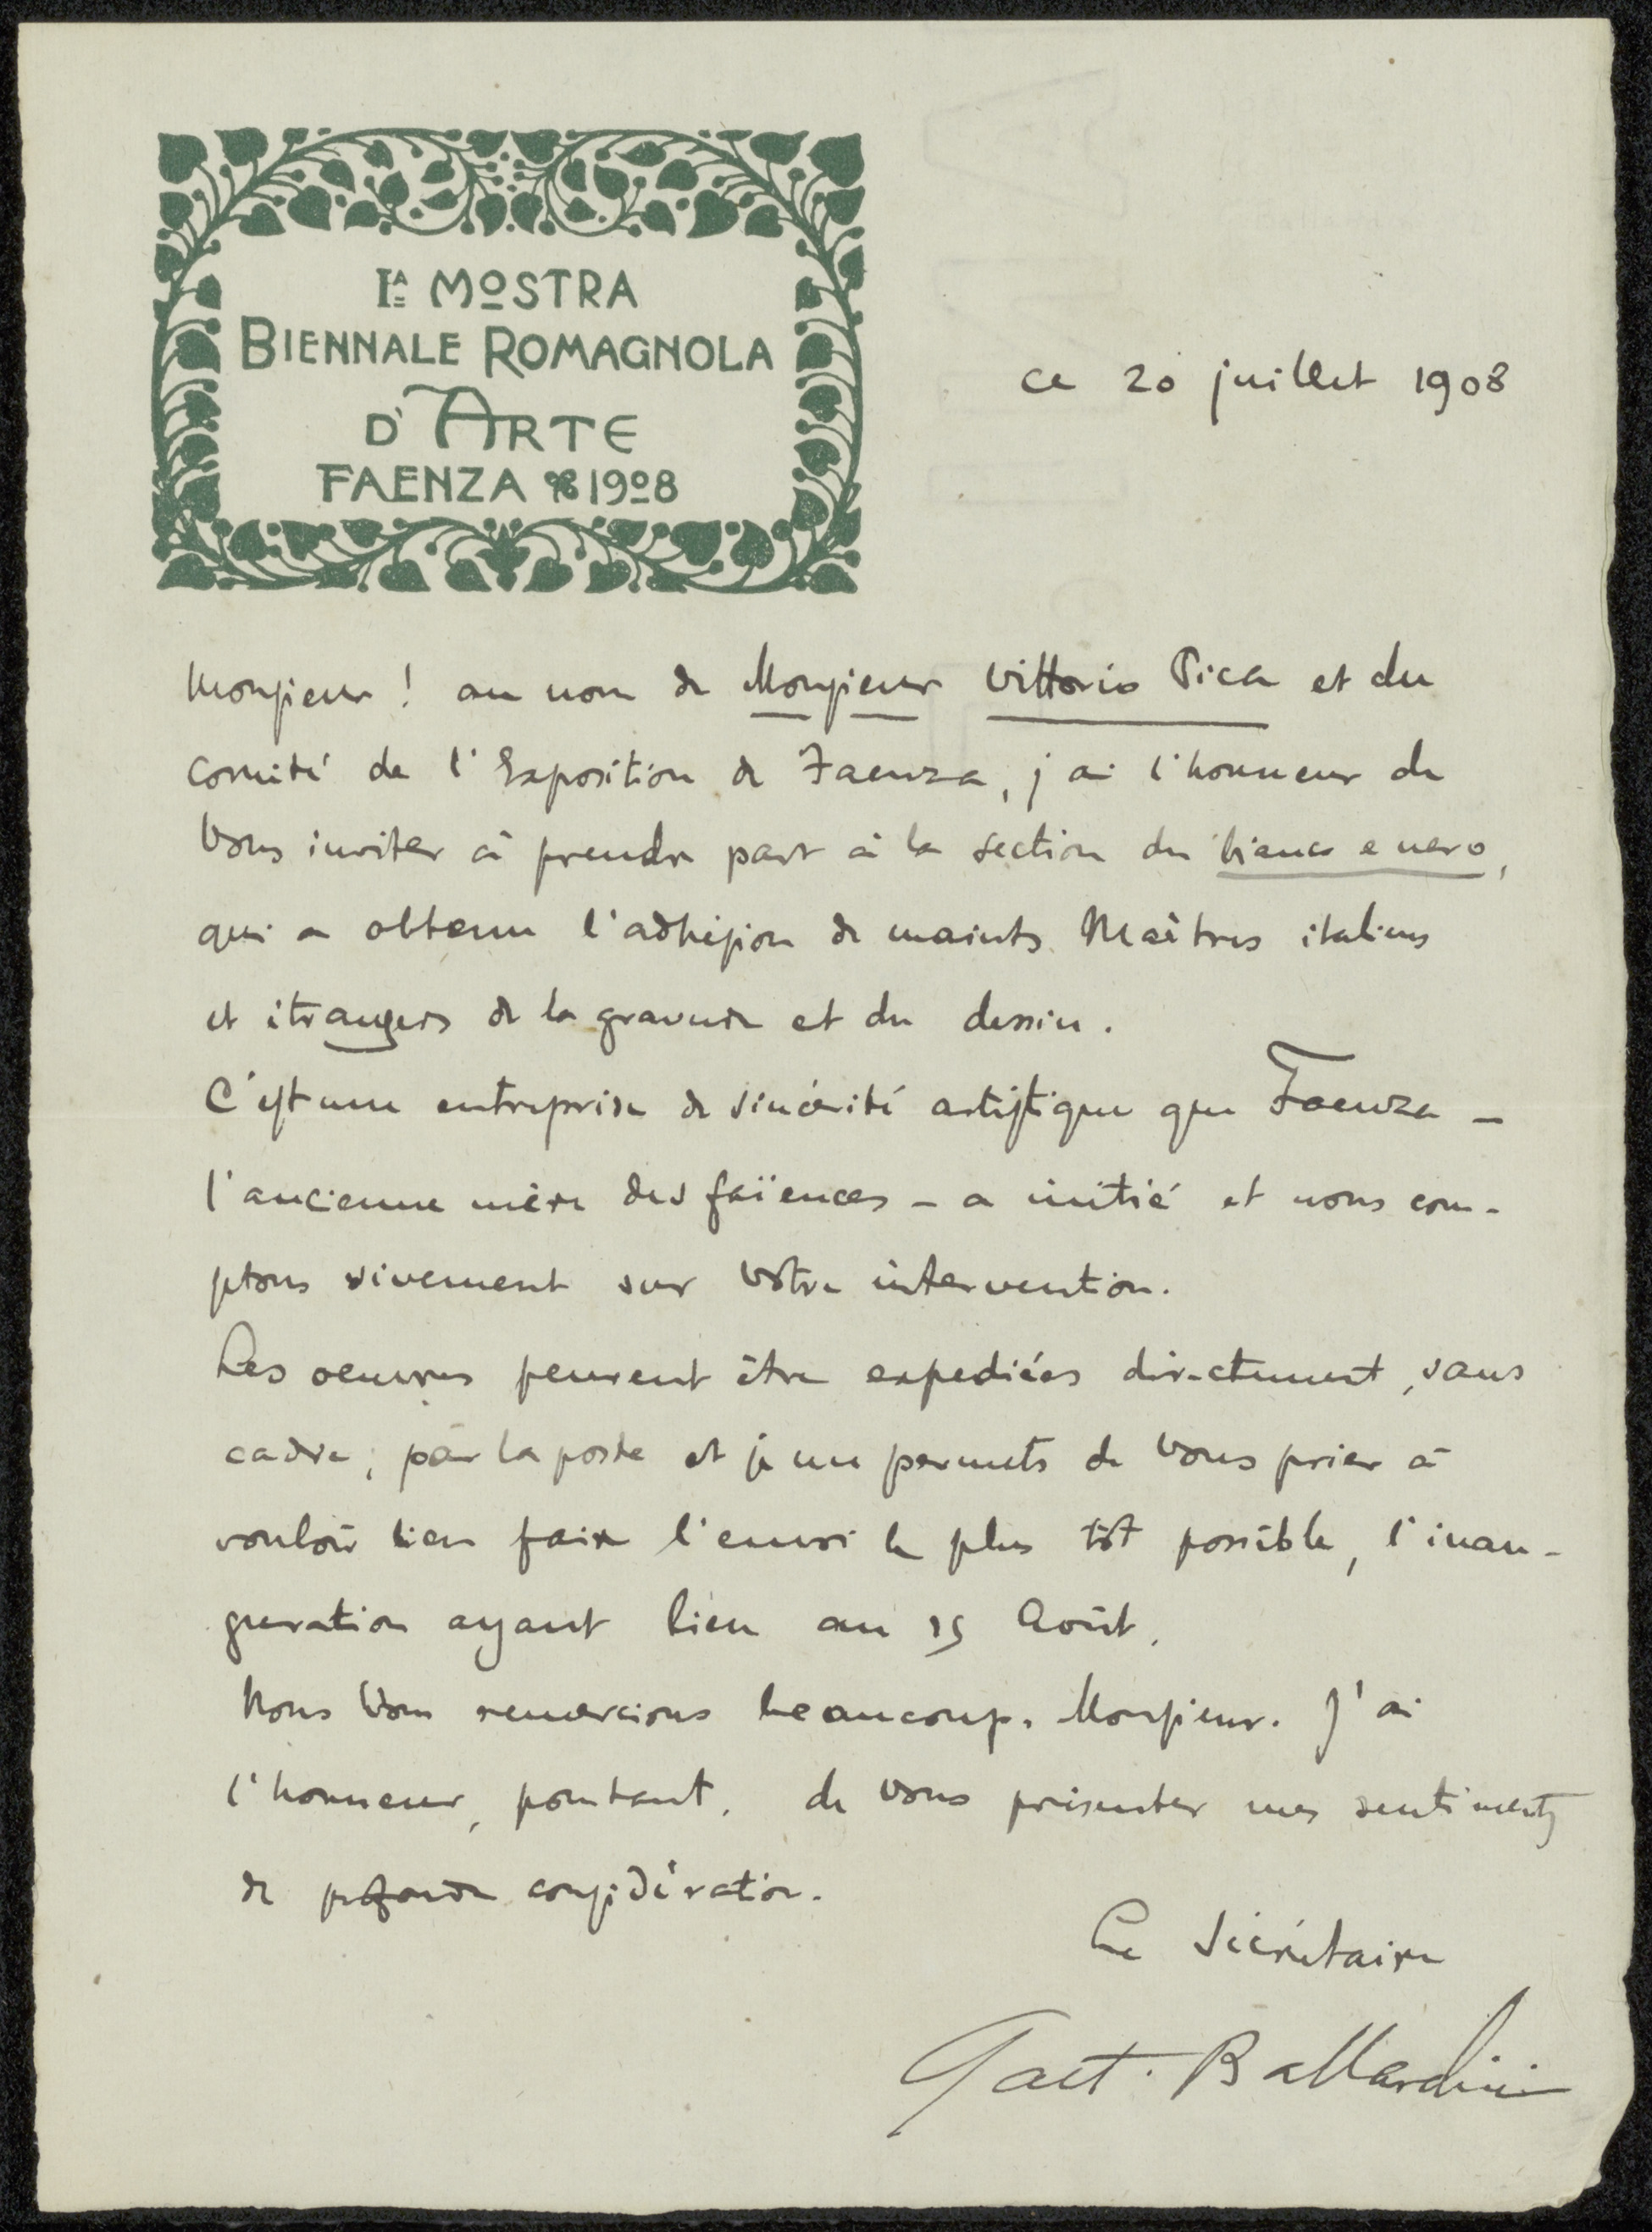 Iª MOSTRA
BIENNALE ROMAGNOLA
D'ARTE
FAENZA 1908
ce 20 juillet 1908
Monsieur ! au nom de Monsieur Vittorio Pica et du
comité de l'Exposition de Faenza, j'ai l'honneur de
Vous inviter à prendre part à la section du bianco e nero,
qui a obtenu l'adhésion de maints Maîtres italiens
et étrangers de la gravure et du dessin.
C'est une entreprise de sincérité artistique que Faenza –
l'ancienne mère des faïences – a initié et nous com-
ptons vivement sur Votre intervention.
Les oeuvres peuvent être expediées directement, sans
cadre, par la poste et je me permets de Vous prier à
vouloir bien faire l'envoi le plus tôt possible, l'inau-
guration ayant lieu au 15 Août.
Nous Vous remercions beaucoup, Monsieur. J'ai
l'honneur, pourtant, de Vous présenter mes sentiments
de profonde considération.
Le Sécrétaire
Gaet. Ballardini